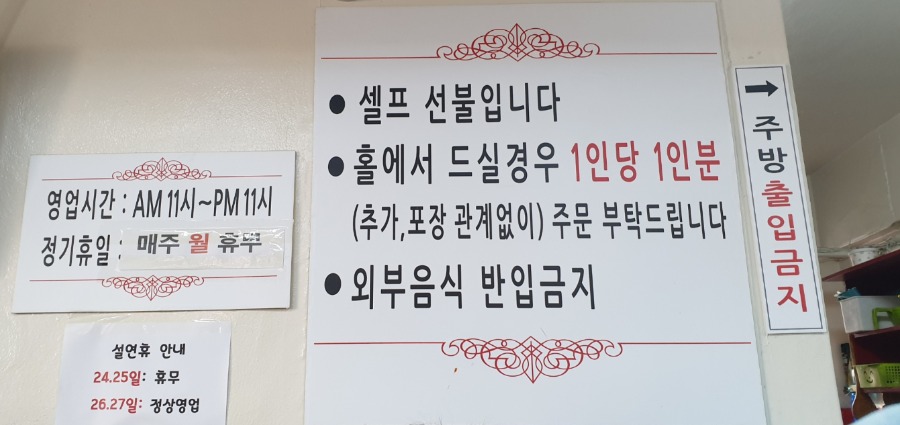 영업시간 : AM 11시~PM 11시
정기휴일 : 매주 월 휴무
설연휴 안내
24.25일: 휴무
26.27일: 정상영업
● 셀프 선불입니다
● 홀에서 드실경우 1인당 1인분
(추가,포장 관계없이) 주문 부탁드립니다
● 외부음식 반입금지
→ 주방출입금지